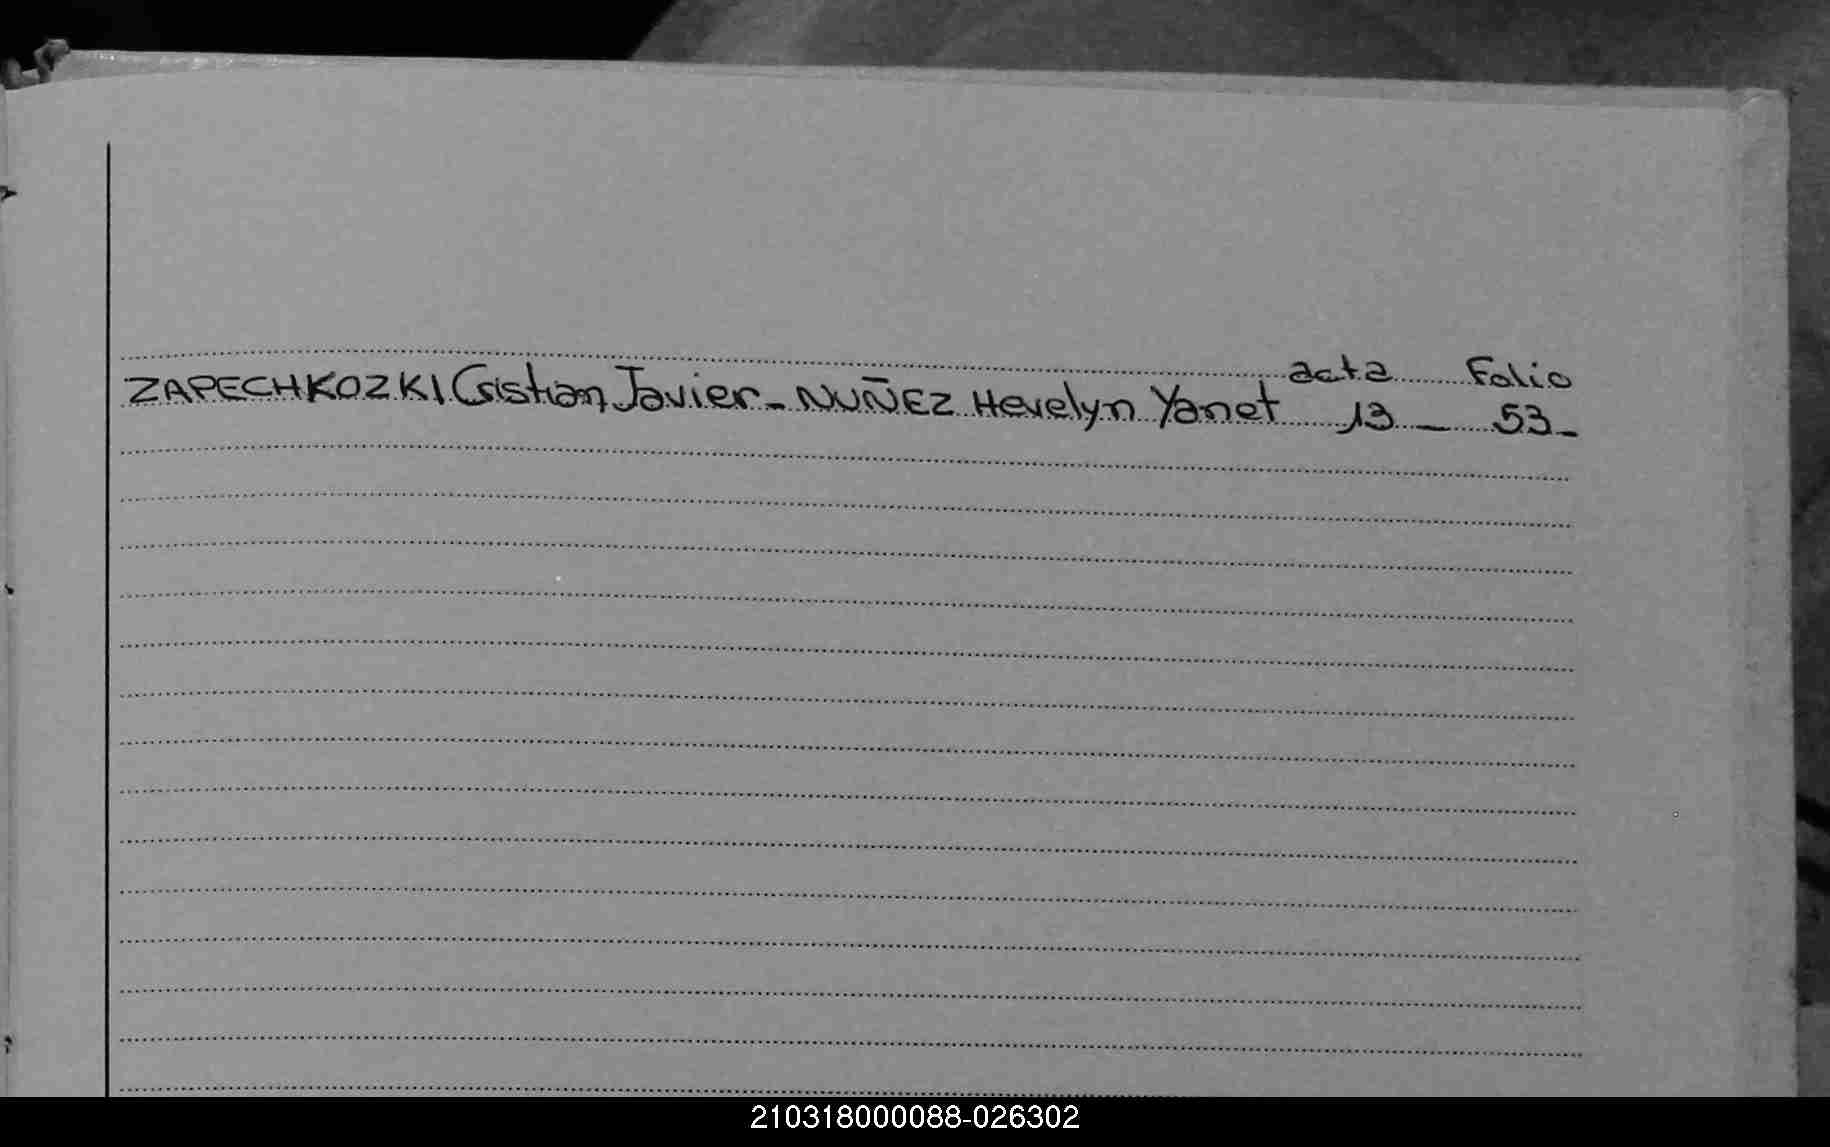 acta Folio
ZAPECHKOZKI Cristian Javier - NUÑEZ Hevelyn Yanet 13 - 53 -
210318000088-026302